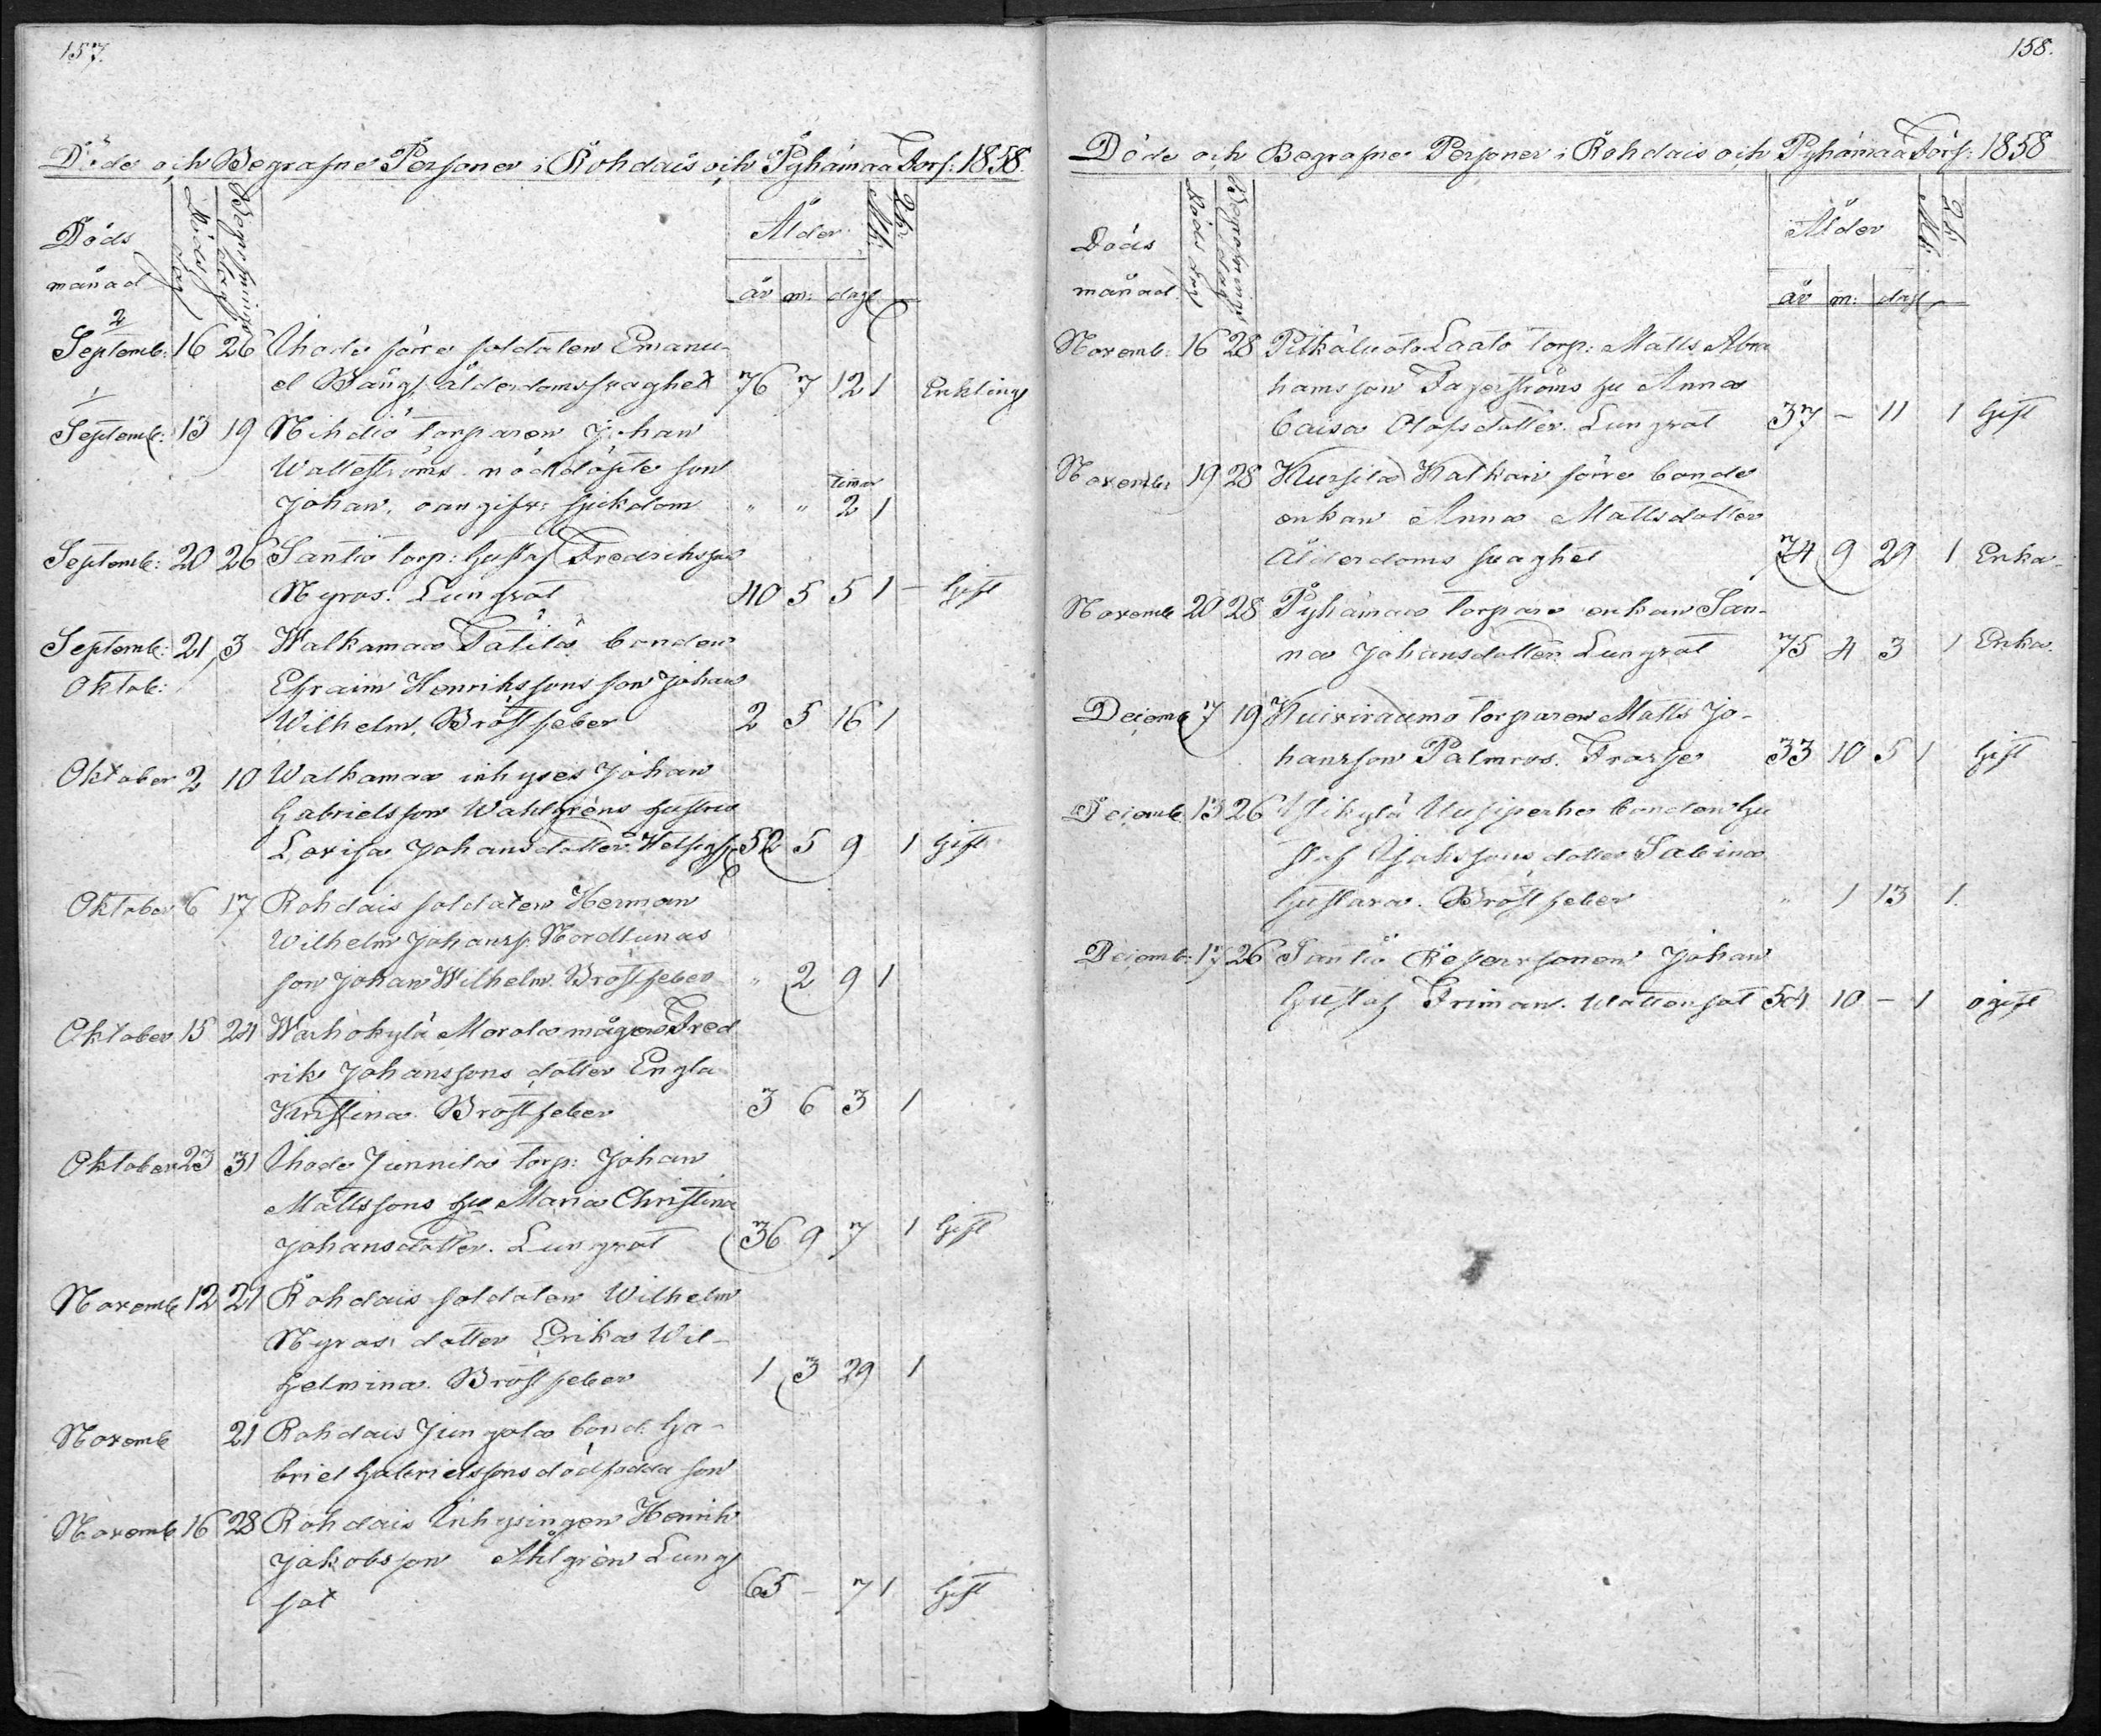 157.
Döde och Begrafne Personer i Rohdais och Pyhämaa Förs: 1858.
Döds månad
Döds dag
Begrafnings dag
Ålder
år m: dag
Mk:
Qk:
2
Septemb: 16 26 Ihode förre soldaten Emanu-
el Bång, ålderdomssvaghet 76 7 12 1 Enkling
1
Septemb: 13 19 Nihdiö torparen Johan
Wallströms nöddöpte son
timar
Johan, oangifv: sjukdom " " 2 1
Septemb: 20 26 Santio torp: Gustaf Fredriksson
Nyros. Lungsot 40 5 5 1 – Gift
Septemb: 21 3 Walkamaa Tatila bonden
Oktob: Efraim Henrikssons son Johan
Wilhelm, Bröstfeber 2 5 16 1
Oktober 2 10 Walkamaa inhyses Johan
Gabrielsson Wahlgréns hustru
Lovisa Johansdotter. 52 5 9 1 Gift
Oktober 6 17 Rohdais soldaten Herman
Wilhelm Johanss: Nordlunds
son Johan Wilhelm. Bröstfeber " 2 9 1
Oktober 15 24 Warhokylä Marola mågen Fred
rik Johanssons dotter Engla
Kristina. Bröstfeber 3 6 3 1
Oktober 23 31 Ihode Junnila torp: Johan
Mattssons hu Maria Christina
Johansdotter. Lungsot 36 9 7 1 Gift
Novemb 12 21 Rohdais soldaten Wilhelm
Nyros dotter Erika Wil-
helmina. Bröstfeber 1 3 29 1
Novemb 21 Rohdais Jungola bond. Ga-
briel Gabrielssons dödfödda son
Novemb 16 28 Rohdais Inhysingen Henrik
Jakobsson Ahlgrén Lung
sot 65 – 7 1 Gift
158.
Döde och Begrafne Personer i Rohdais och Pyhämaa Förs: 1858
Döds månad.
Döds dag
Begrafnings dag
Ålder
år m: dag
Mk:
Qk:
Novemb: 16 28 Pitkäluoto Laato torp: Matts Abra
hamsson Fagerströms hu Anna
Caisa Olofsdotter. Lungsot 37 – 11 1 Gift
Novemb: 19 28 Kursila Kalkari förre bonde
enkan Anna Mattsdotter
Ålderdoms svaghet 74 9 29 1 Enka-
Novemb 20 28 Pyhämaa torpare enkan San-
na Johansdotter. Lungsot 75 4 3 1 Enka.
Decemb 7 19 Kuiviraumo torparen Matts Jo-
hansson Palmros. Frossa 33 10 5 1 Gift
Decemb 13 26 Ylikylä Uusiperhe bonden Gu
staf Isakssons dotter Sabina
Gustava. Bröstfeber " 1 13 1.
Decemb: 17 26 Santio Reservsonen Johan
Gustaf Friman. Wattensot 54 10 – 1 ogift